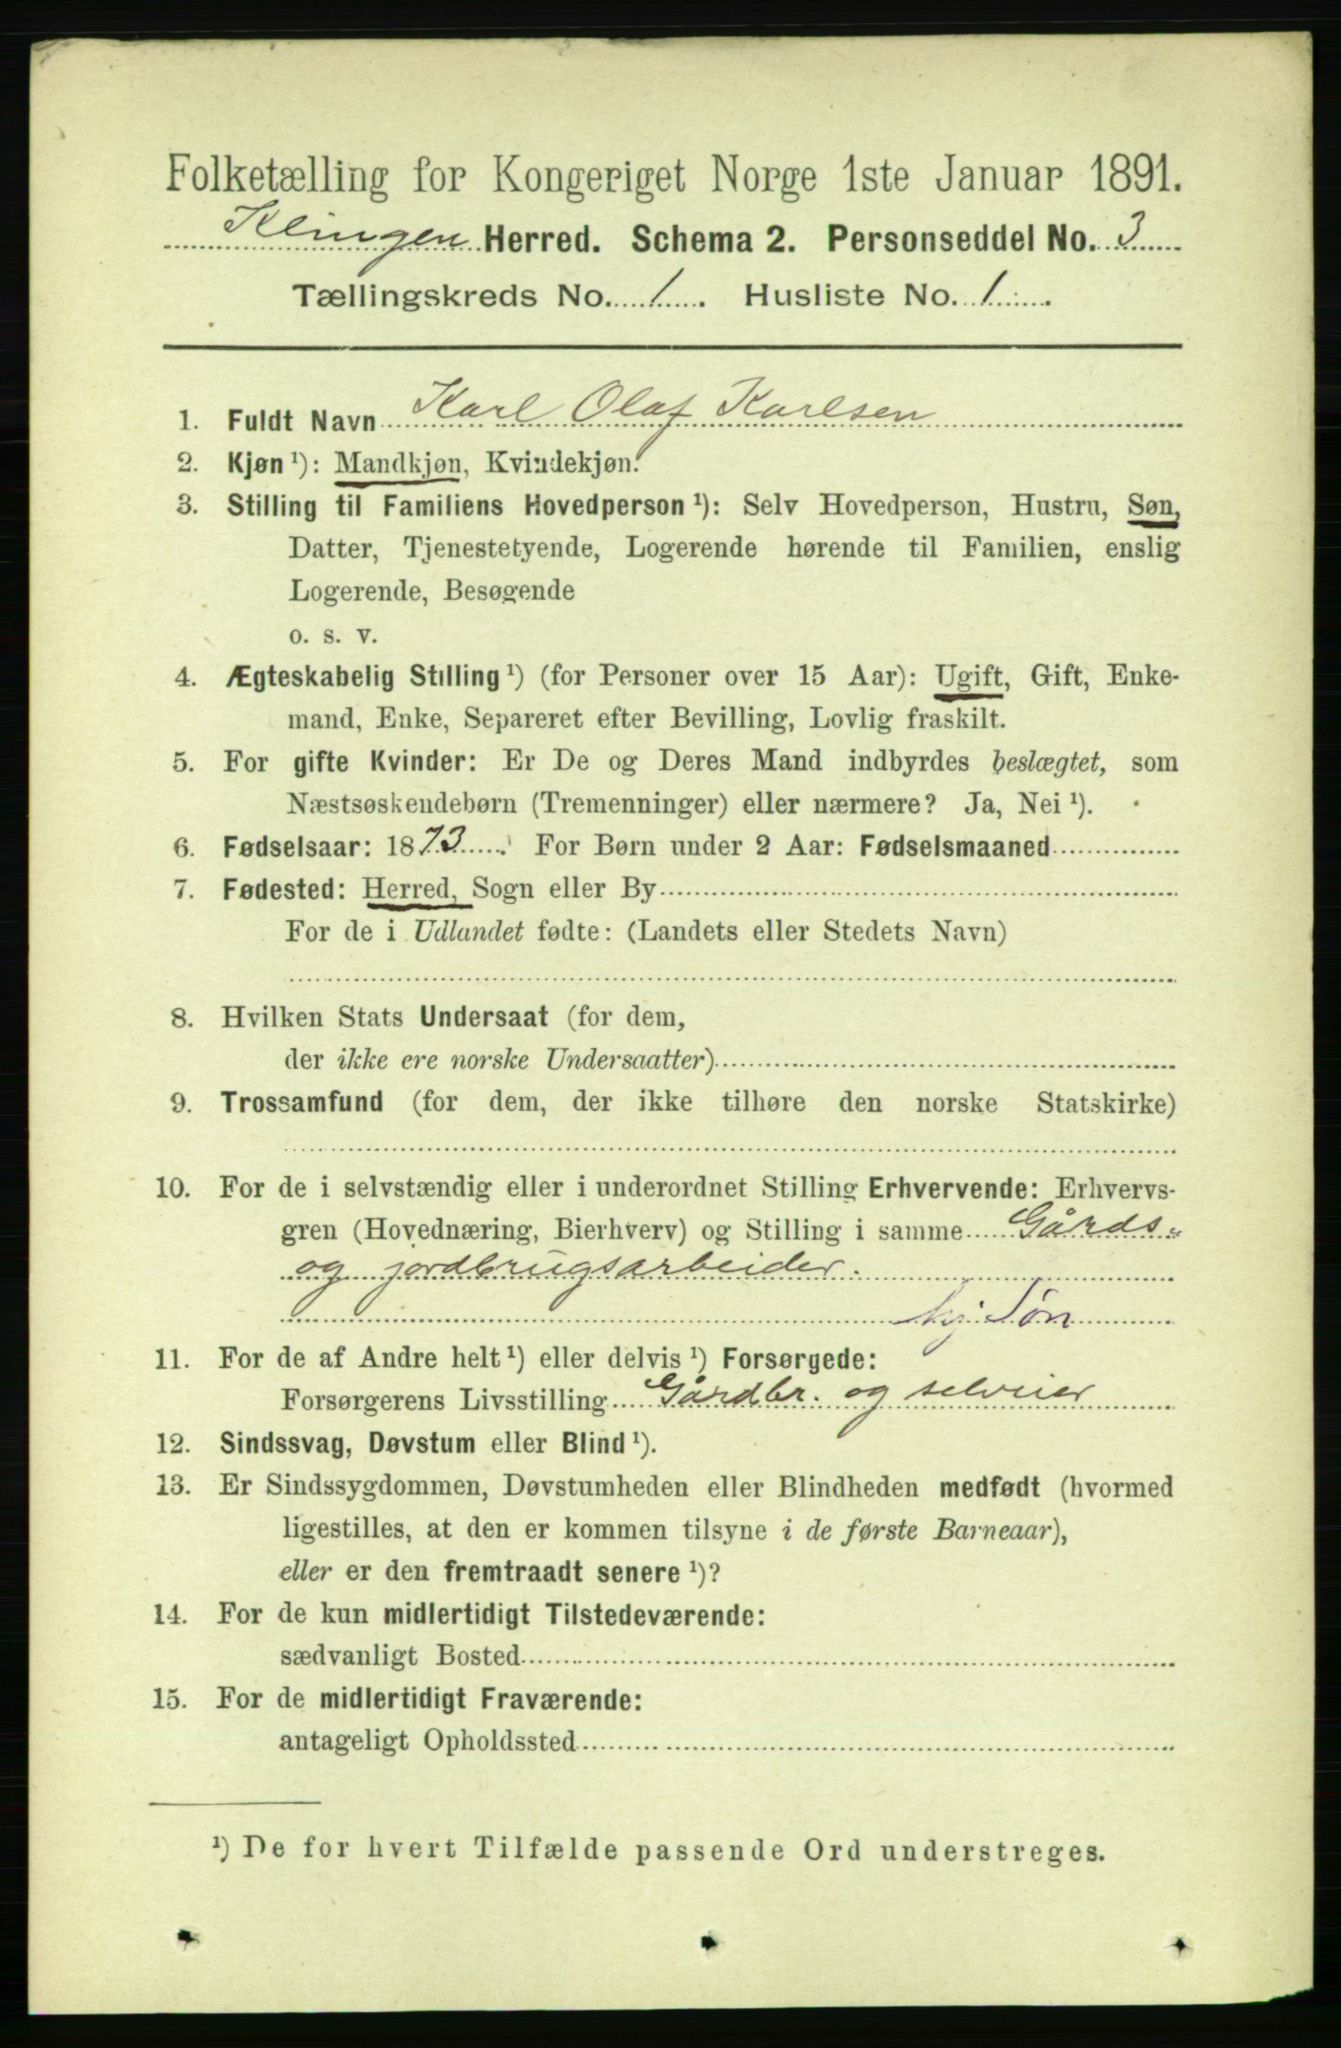 Folketælling for Kongeriget Norge 1ste Januar 1891.
Klingen Herred. Schema 2. Personseddel No. 3
Tællingskreds No. 1. Husliste No. 1.
1. Fuldt Navn Karl Olaf Karlsen
2. Kjøn ¹): Mandkjøn, Kvindekjøn.
3. Stilling til Familiens Hovedperson ¹): Selv Hovedperson, Hustru, Søn,
Datter, Tjenestetyende, Logerende hørende til Familien, enslig
Logerende, Besøgende
o. s. v.
4. Ægteskabelig Stilling ¹) (for Personer over 15 Aar): Ugift, Gift, Enke-
mand, Enke, Separeret efter Bevilling, Lovlig fraskilt.
5. For gifte Kvinder: Er De og Deres Mand indbyrdes beslægtet, som
Næstsøskendebørn (Tremenninger) eller nærmere? Ja, Nei ¹).
6. Fødselsaar: 1873. For Børn under 2 Aar: Fødselsmaaned
7. Fødested: Herred, Sogn eller By
For de i Udlandet fødte: (Landets eller Stedets Navn)
8. Hvilken Stats Undersaat (for dem,
der ikke ere norske Undersaatter)
9. Trossamfund (for dem, der ikke tilhøre den norske Statskirke)
10. For de i selvstændig eller i underordnet Stilling Erhvervende: Erhvervs-
gren (Hovednæring, Bierhverv) og Stilling i samme Gårds-
og jordbrugsarbeider.
hj. Søn
11. For de af Andre helt ¹) eller delvis ¹) Forsørgede:
Forsørgerens Livsstilling Gårdbr. og selveier
12. Sindssvag, Døvstum eller Blind ¹).
13. Er Sindssygdommen, Døvstumheden eller Blindheden medfødt (hvormed
ligestilles, at den er kommen tilsyne i de første Barneaar),
eller er den fremtraadt senere ¹)?
14. For de kun midlertidigt Tilstedeværende:
sædvanligt Bosted
15. For de midlertidigt Fraværende:
antageligt Opholdssted
¹) De for hvert Tilfælde passende Ord understreges.